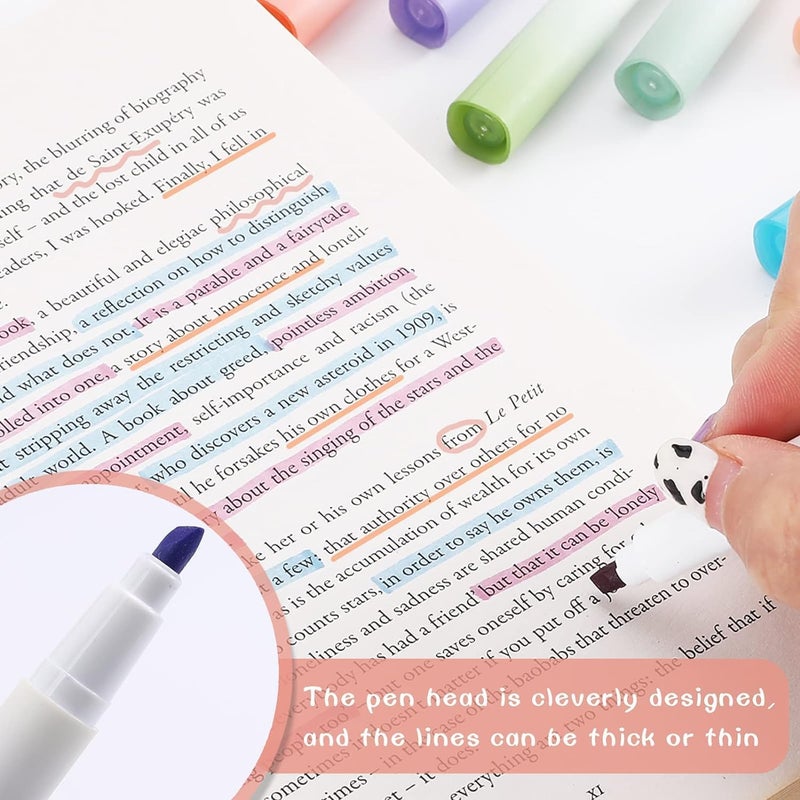 ory, the blurring of biography
ng that de Saint-Exupéry was
self – and the lost child in all of us
eaders, I was hooked. Finally, I fell in
e.
ook, a beautiful and elegiac philosophical
riendship, a reflection on how to distinguish
d what does not. It is a parable and a fairytale
olled into one, a story about innocence and loneli-
t stripping away the restricting and sketchy values
adult world. A book about greed, pointless ambition,
ppointment, self-importance and racism (the
who discovers a new asteroid in 1909, is
til he forsakes his own clothes for a West-
ry about the singing of the stars and the
ke her or his own lessons from Le Petit
a few: that authority over others for no
as is the accumulation of wealth for its own
counts stars, in order to say he owns them, is
loneliness and sadness are shared human condi-
body has had a friend' but that it can be 'lonely
but one saves oneself by caring for
matter if you put off a
in the case of the baobabs that threaten to over-
et – it does. the belief that if
everything
XI
The pen head is cleverly designed,
and the lines can be thick or thin